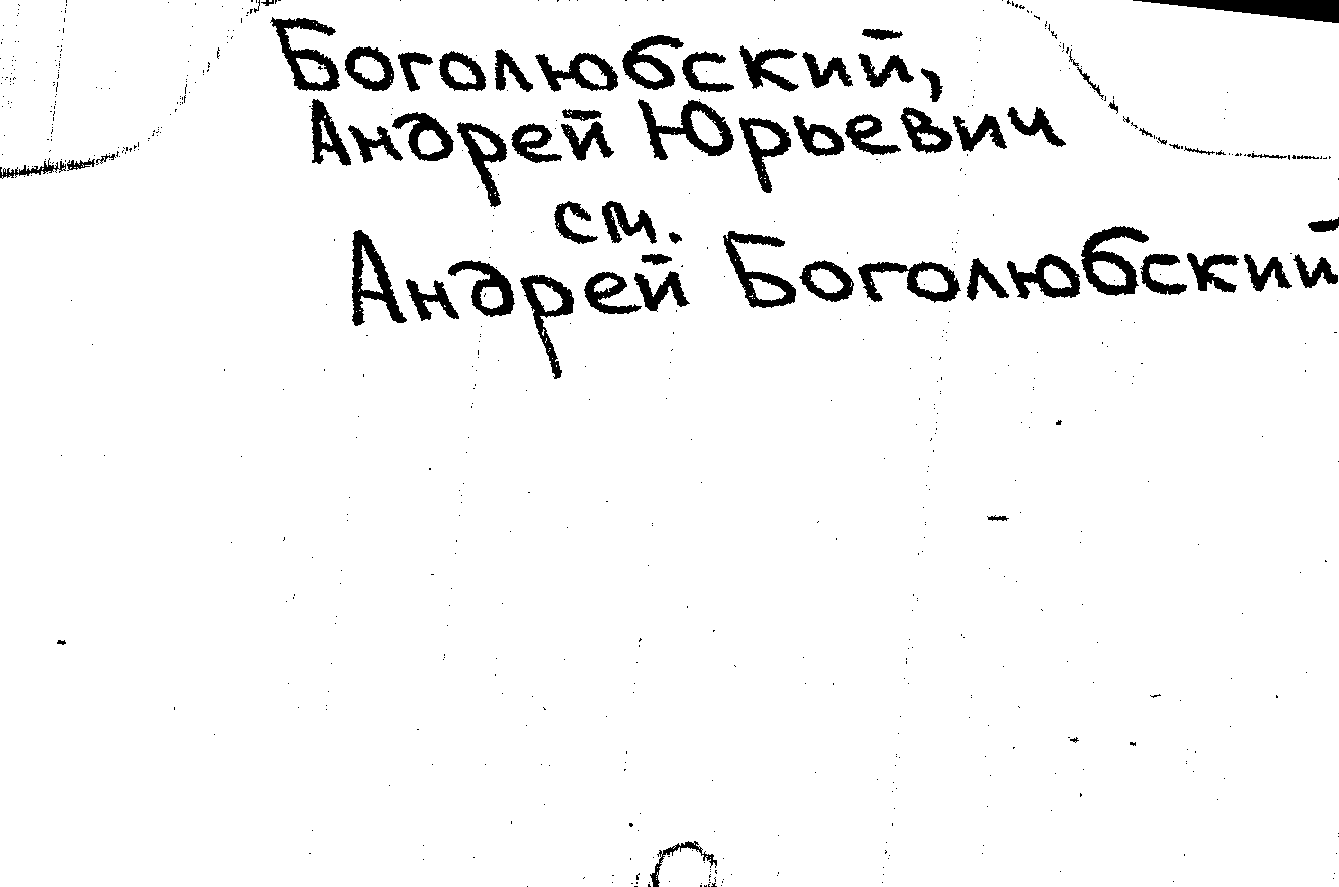 Боголюбский,
Андрей Юрьевич
см.
Андрей Боголюбский